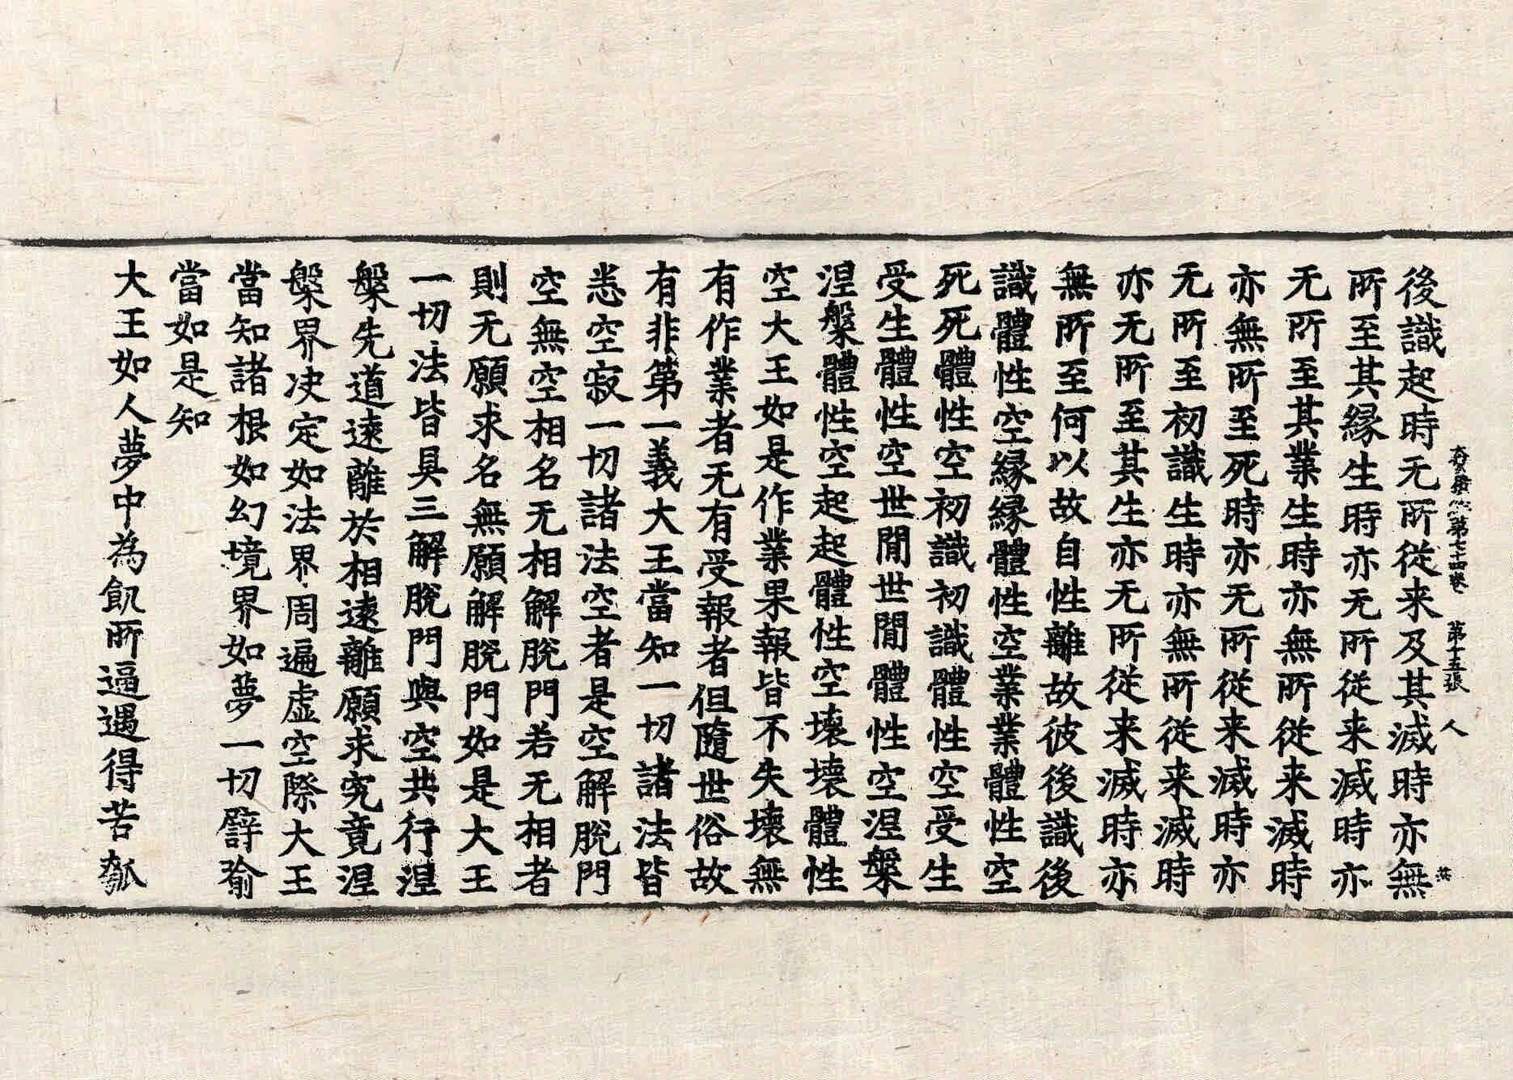 後識起時无所從来及其滅時亦無
所至其緣生時亦无所從来滅時亦
无所至其業生時亦無所從来滅時
亦無所至死時亦无所從来滅時亦
无所至初識生時亦無所從来滅時
亦无所至其生亦无所從来滅時亦
無所至何以故自性離故彼後識後
識體性空緣緣體性空業業體性空
死死體性空初識初識體性空受生
受生體性空世閒世閒體性空涅槃
涅槃體性空起起體性空壞壞體性
空大王如是作業果報皆不失壞無
有作業者无有受報者但隨世俗故
有非第一義大王當知一切諸法皆
悉空寂一切諸法空者是空解脫門
空無空相名无相解脫門若无相者
則无願求名無願解脫門如是大王
一切法皆具三解脫門與空共行涅
槃先道遠離於相遠離願求究竟涅
槃界决定如法界周遍虛空際大王
當知諸根如幻境界如夢一切譬喻
當如是知
大王如人夢中為飢所逼遇得苦瓠
第七十四卷 第十五張 人